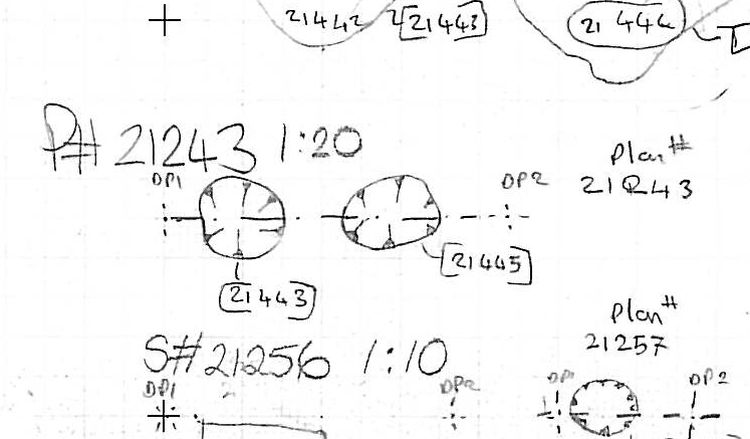 21442 [21443] 21444
P# 21243 1:20
DP1 DP2
Plan#
21243
[21445]
[21443]
Plan#
21257
S# 21256 1:10
DP1 DP2 DP1 DP2